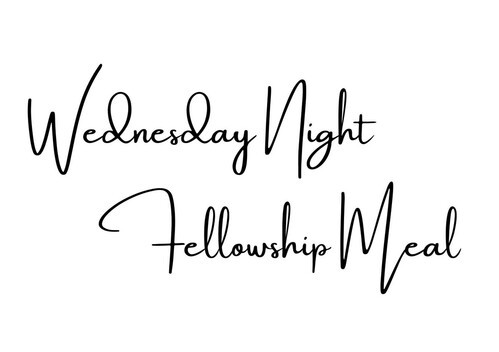 Wednesday Night
Fellowship Meal